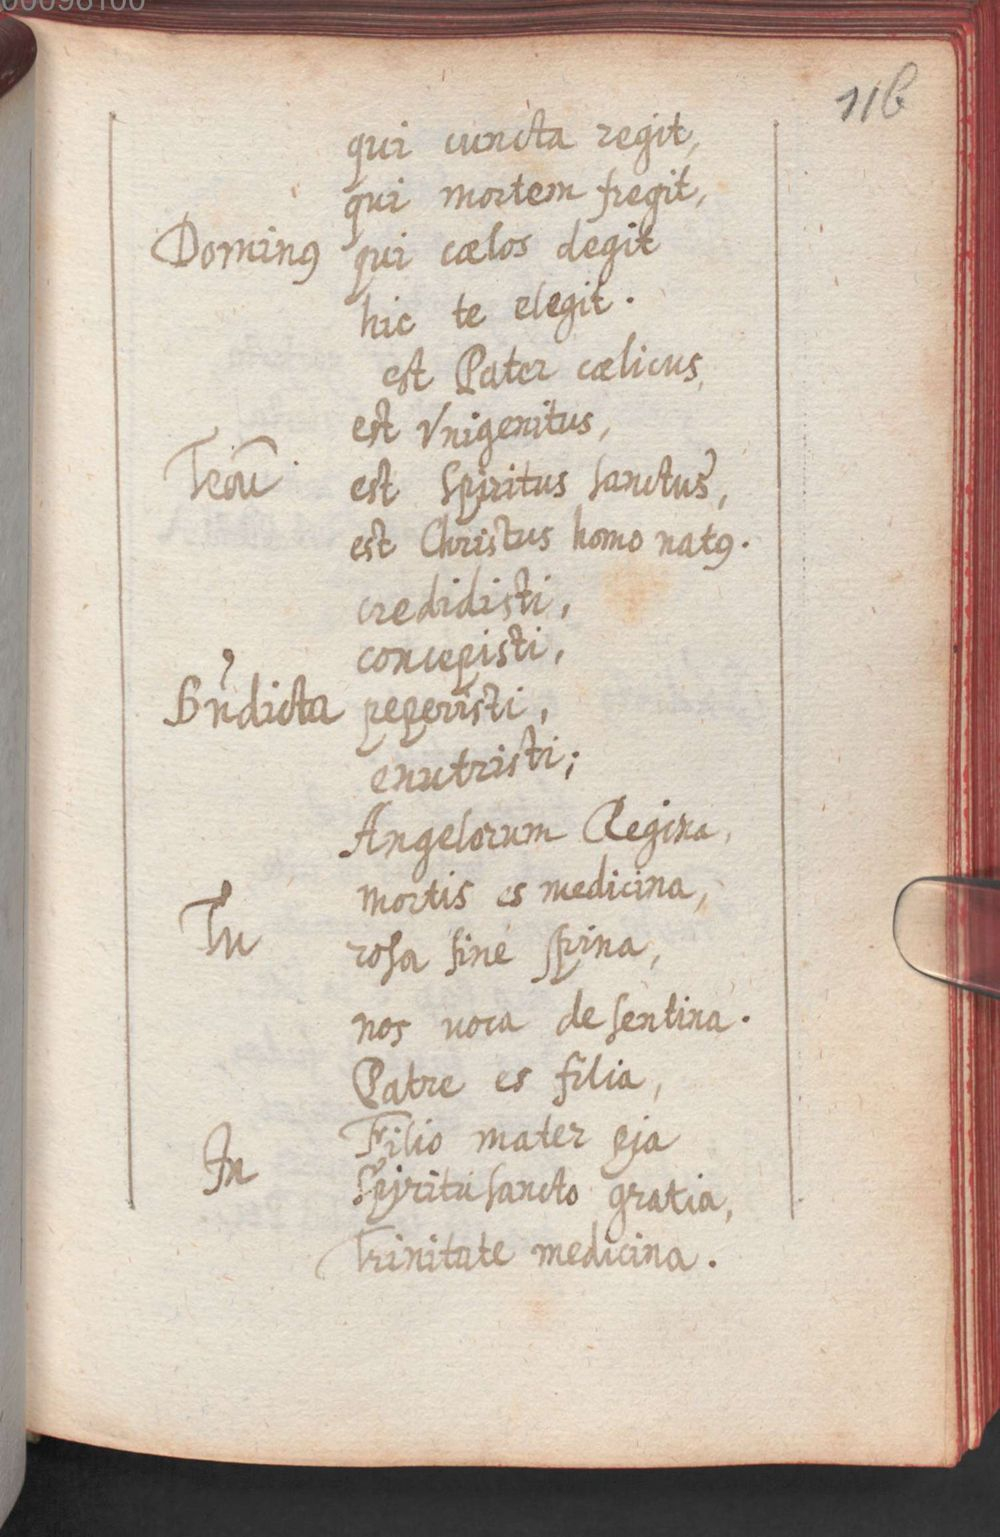 00098100
116
qui cuncta regit,
qui mortem fregit,
Dominꝰ qui cælos degit
hic te elegit.
est Pater cælicus,
est Vnigenitus,
Tecũ est Spiritus Sanctus,
est Christus homo natꝰ.
credidisti,
concepisti,
Bñdicta peperisti,
enutristi;
Angelorum Regina,
mortis es medicina,
Tu rosa sine spina,
nos uoca de sentina.
Patre es filia,
Filio mater pia
In Spiritu sancto gratia,
Trinitate medicina.